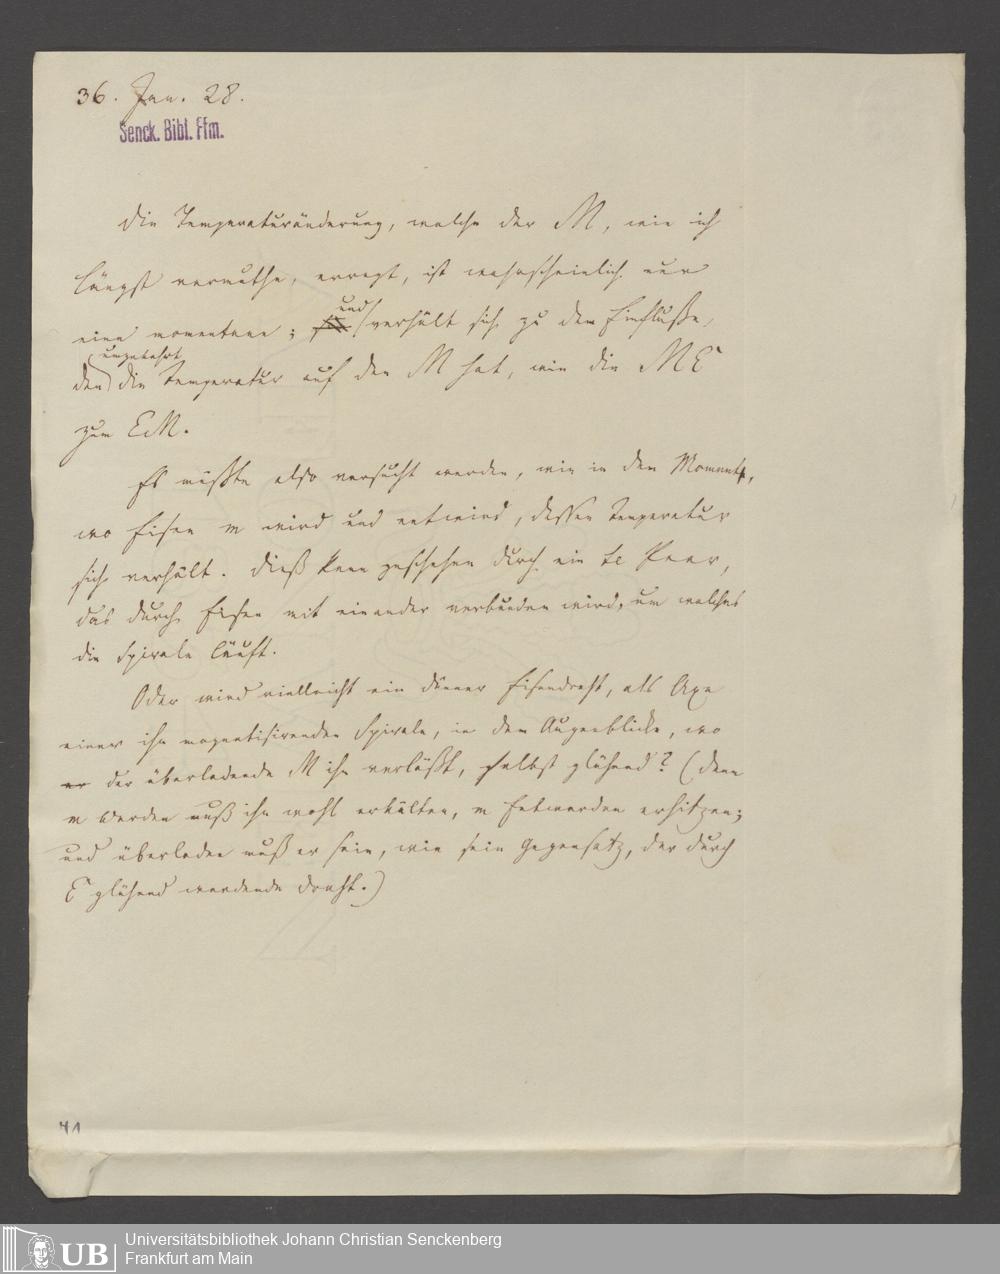 36. Jan. 28.
Senck. Bibl. Ffm.
Die Temperaturänderung, welche der M, wie ich
längst vermuthe, erregt, ist wahrscheinlich nur
eine momentane; und verhält sich zu dem Einflusse,
den umgekehrt die Temperatur auf den M hat, wie die ME
zum EM.
Es müßte also versucht werden, wie in dem Momente,
wo Eisen m wird und entwird, dessen Temperatur
sich verhält. Dieß kann geschehen durch ein te Paar,
das durch Eisen mit einander verbunden wird, um welches
die Spirale läuft.
Oder wird vielleicht ein dünner Eisendraht, als Axe
einer ihn magnetisirenden Spirale, in dem Augenblicke, wo
er der überladende M ihn verläßt, selbst glühend? (denn
m werden muß ihn wohl erkälten, m Entwerden erhitzen;
und überladen muß er sein, wie sein Gegensatz, der durch
E glühend werdende Draht.)
41
UB
Universitätsbibliothek Johann Christian Senckenberg
Frankfurt am Main